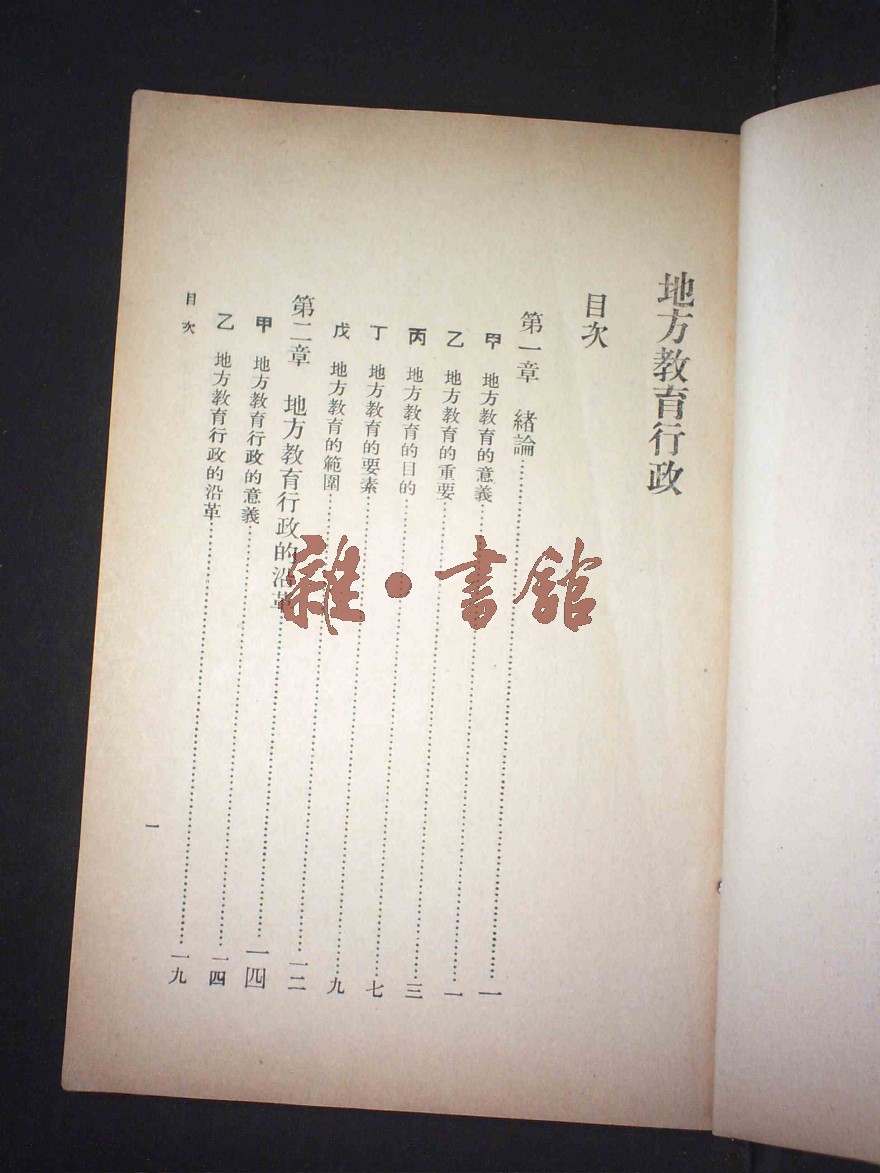 地方教育行政
目次
第一章 緒論……一
甲 地方教育的意義……一
乙 地方教育的重要……三
丙 地方教育的目的……七
丁 地方教育的要素……九
戊 地方教育的範圍……一二
第二章 地方教育行政的沿革……一四
甲 地方教育行政的意義……一四
乙 地方教育行政的沿革……一九
目次
一
雜·書館